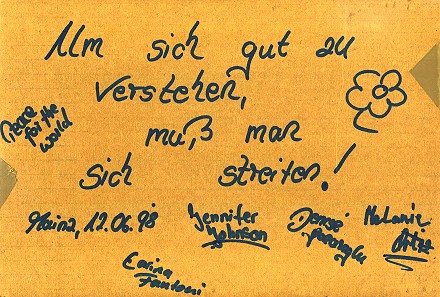 Um sich gut zu
verstehen,
muß man
sich streiten!
Peace
for the
world
Mainz, 12.06.98
Jennifer
Johnson
Melanie
Carina
Fantoni